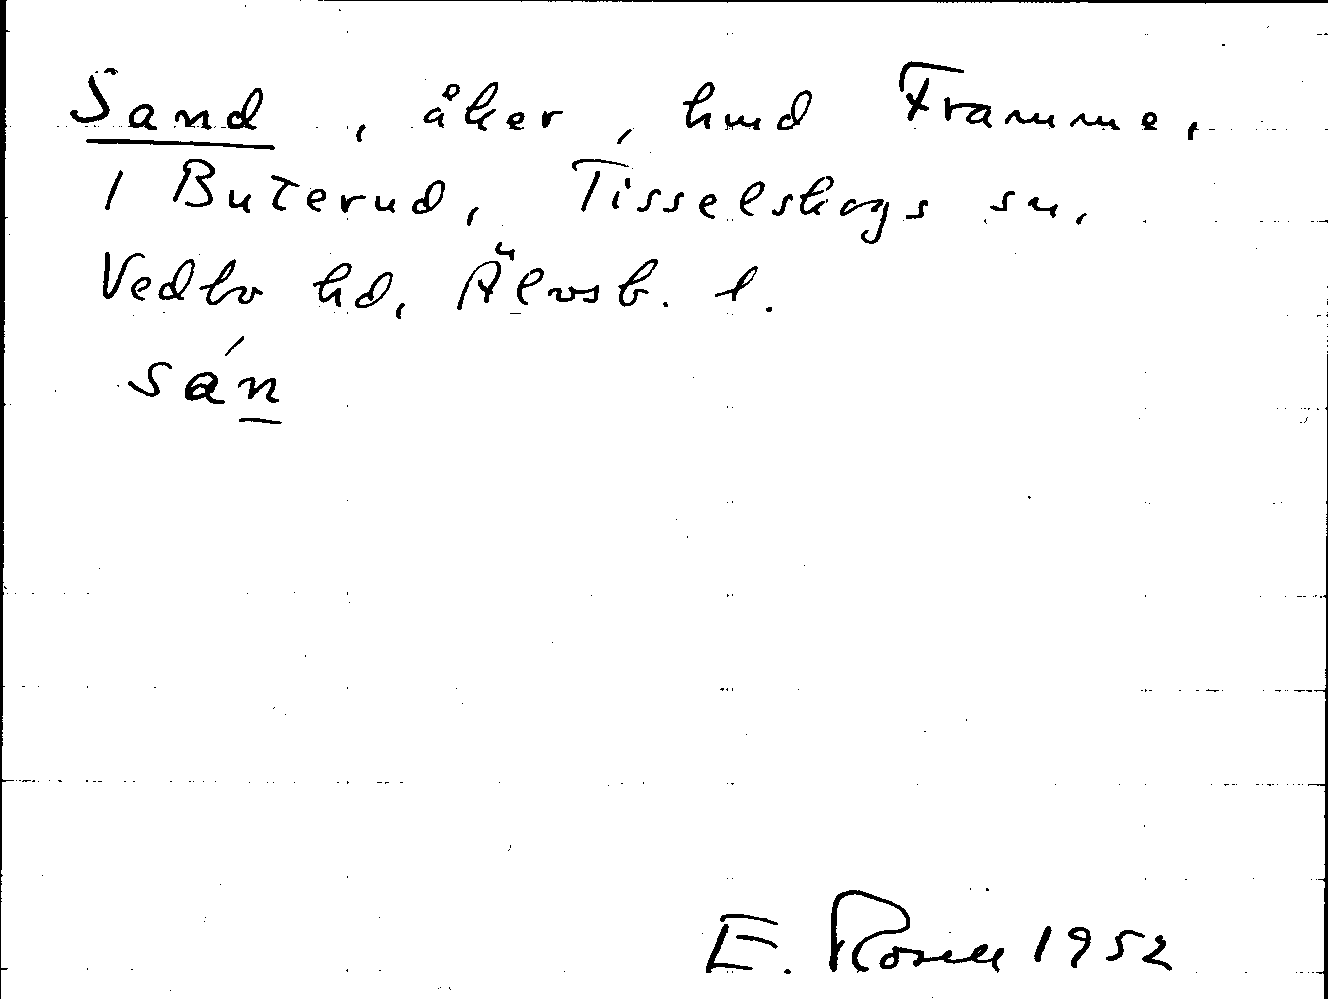 Sand, åker, hmd Framme,
1 Buterud, Tisselskogs sn,
Vedbo hd, Älvsb. l.
sán
E. Rosell 1952